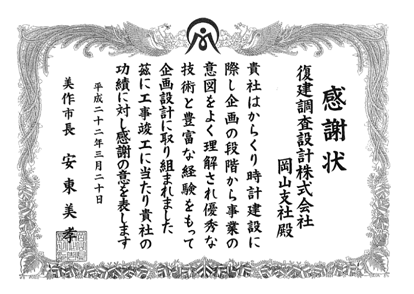 感謝状
復建調査設計株式会社
岡山支社殿
貴社はからくり時計建設に
際し企画の段階から事業の
意図をよく理解され優秀な
技術と豊富な経験をもって
企画設計に取り組まれました
茲に工事竣工に当たり貴社の
功績に対し感謝の意を表します
平成二十二年三月二十日
美作市長 安東美孝